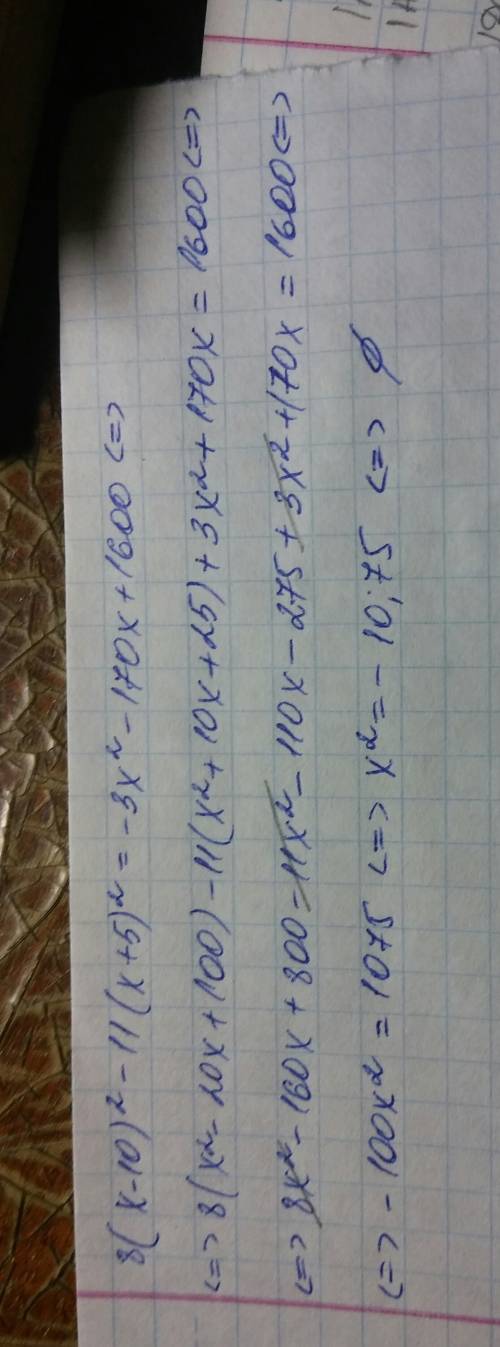 8(x-10)² - 11(x+5)² = -3x² - 170x + 1600 <=>
<=> 8(x² - 20x + 100) - 11(x² + 10x + 25) + 3x² + 170x = 1600 <=>
<=> 8x² - 160x + 800 - 11x² - 110x - 275 + 3x² + 170x = 1600 <=>
<=> -100x² = 1075 <=> x² = -10,75 <=> ∅